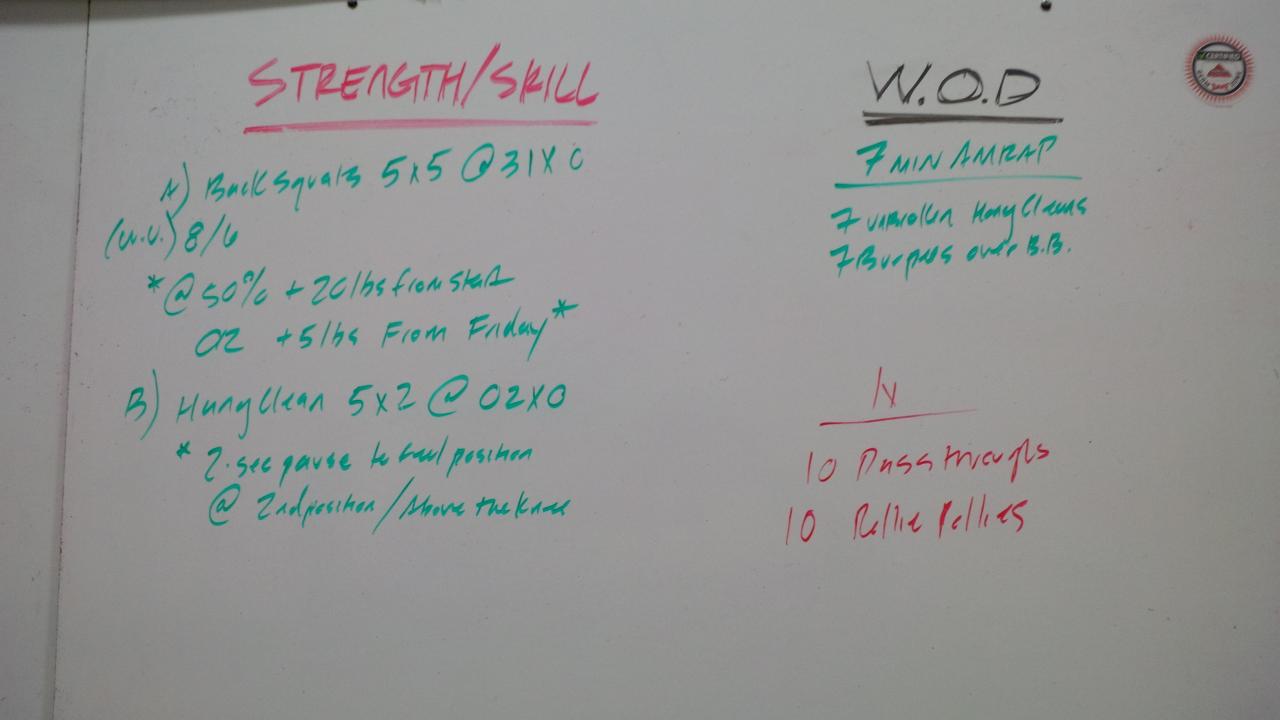 STRENGTH/SKILL
A) Back Squats 5x5 @ 31X0
(W.U.) 8/6
* @ 50% + 20lbs from start
OR +5lbs From Friday *
B) Hang Clean 5x2 @ 02X0
* 2-sec pause to feel position
@ 2nd position / Above the knee
W.O.D
7 MIN AMRAP
7 unbroken Hang Cleans
7 Burpees over B.B.
1x
10 Pass throughs
10 Rollie Pollies
CERTIFIED